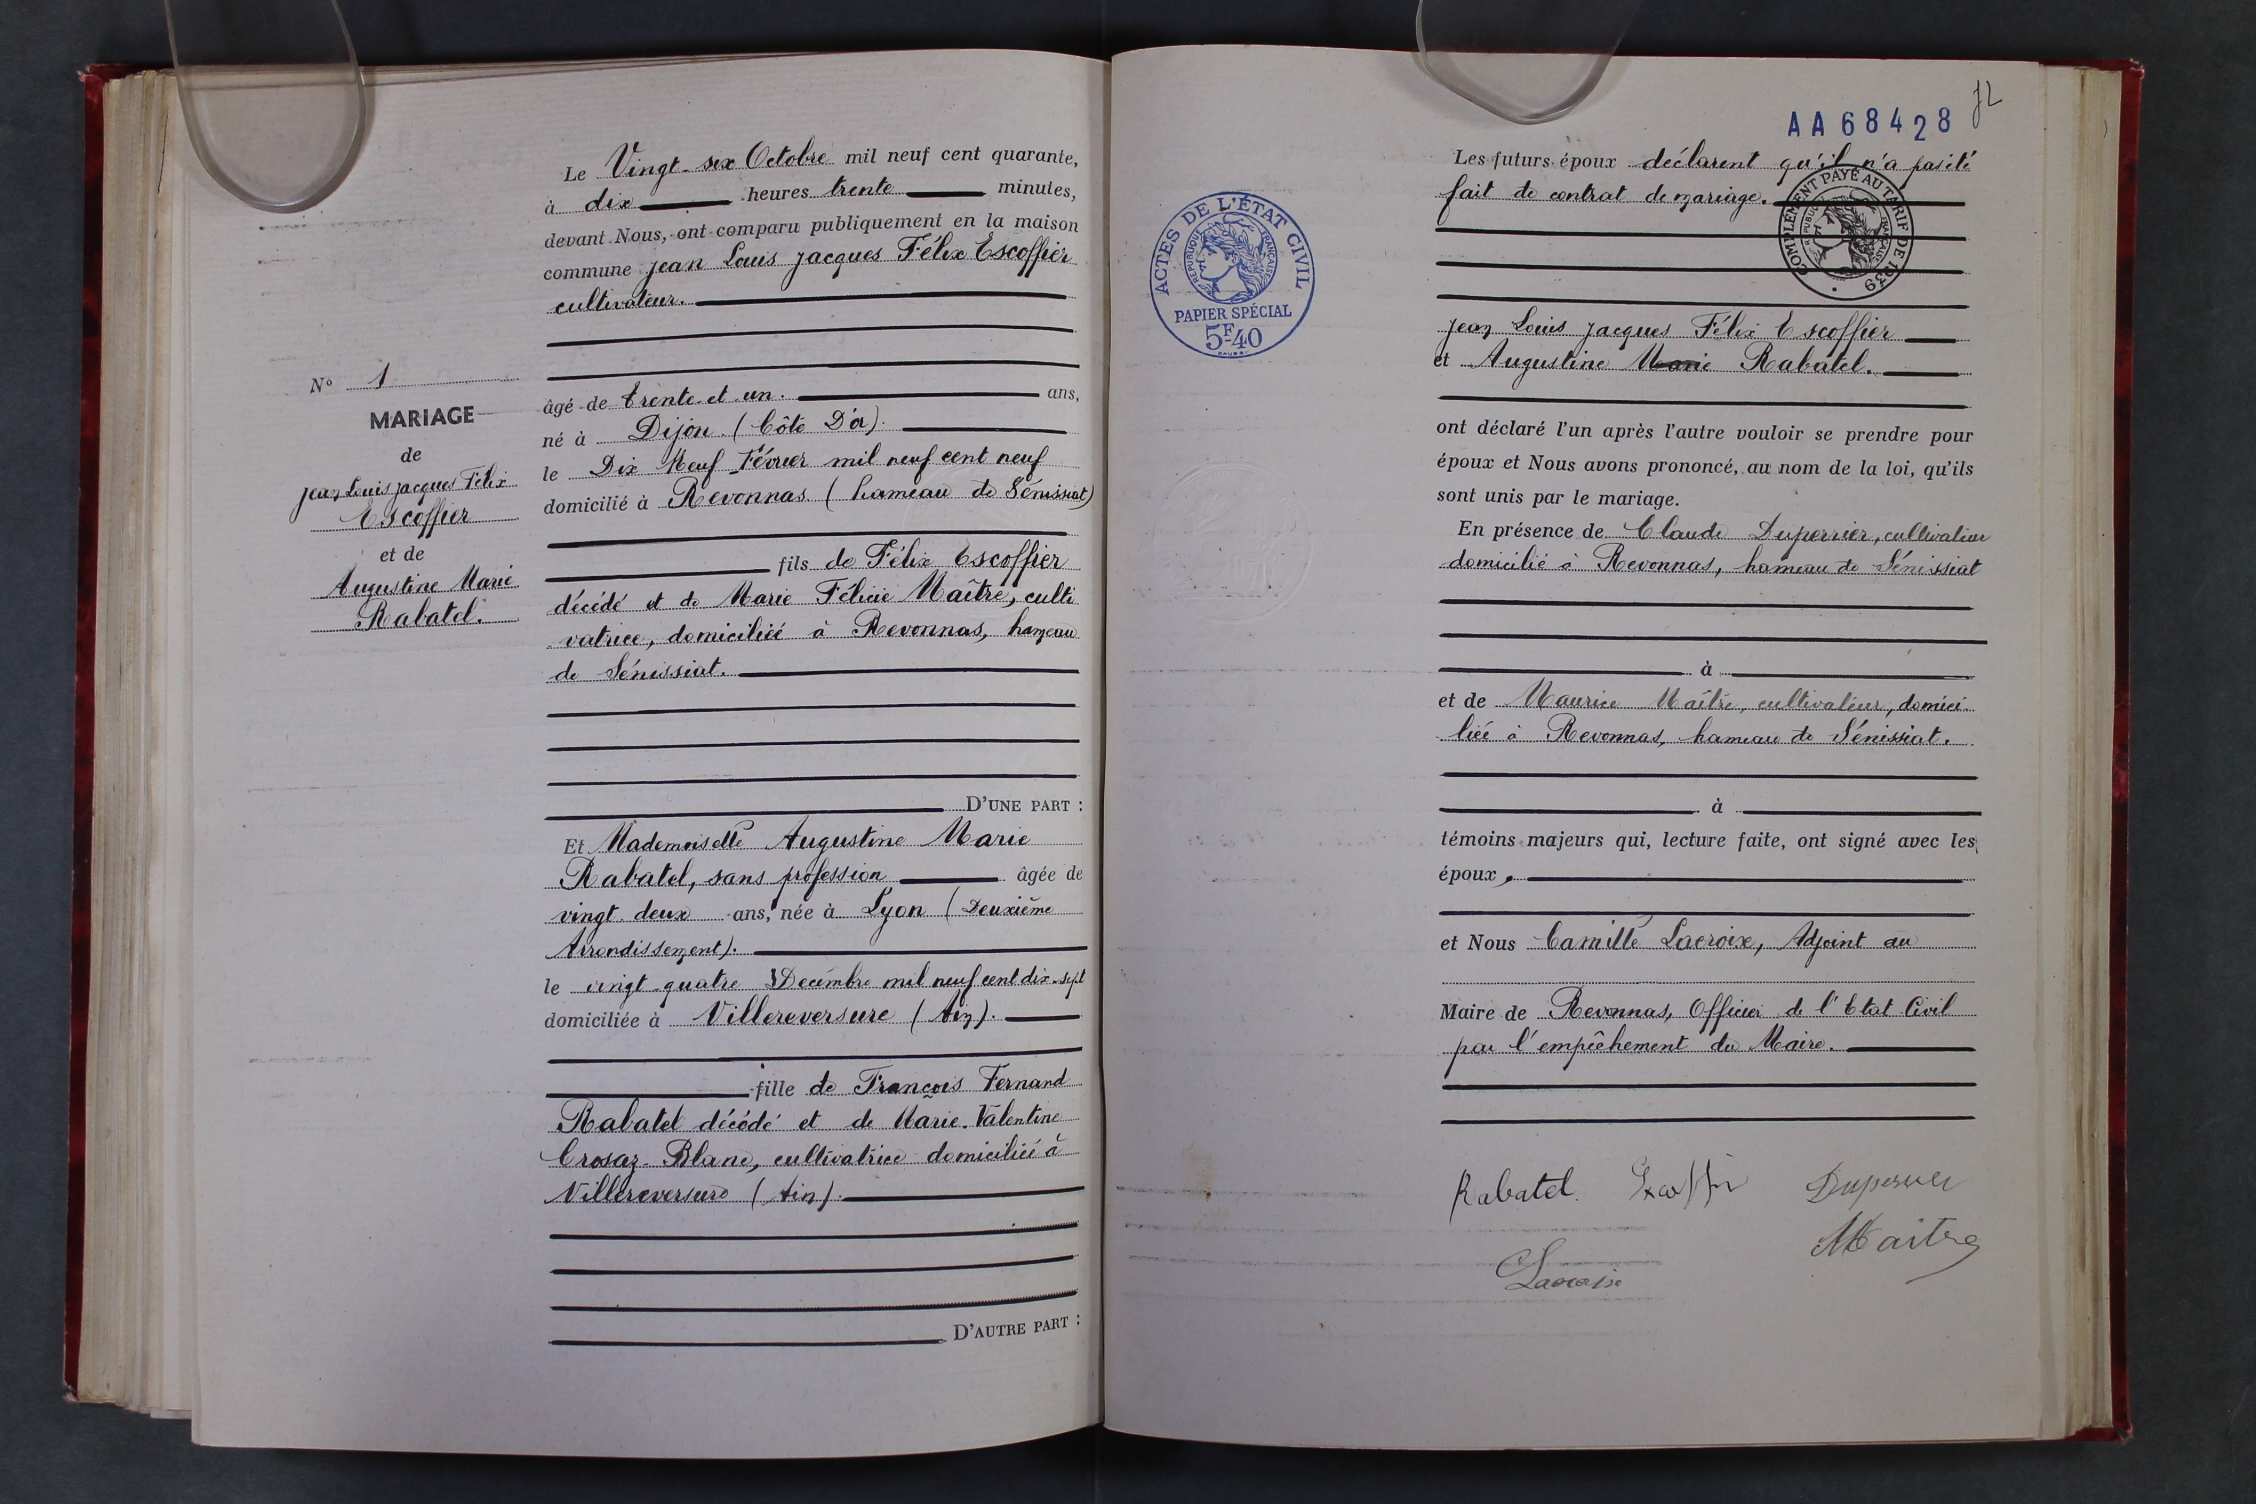 Le Vingt-six Octobre mil neuf cent quarante,
à dix heures trente minutes,
devant Nous, ont comparu publiquement en la maison
commune Jean Louis Jacques Félix Escoffier
cultivateur.
âgé de trente et un. ans,
né à Dijon (Côte D'or).
le Dix Neuf Février mil neuf cent neuf
domicilié à Revonnas (hameau de Sénissiat)
fils de Félix Escoffier
décédé et de Marie Félicie Maître, culti
vatrice, domiciliée à Revonnas, hameau
de Sénissiat.
D'UNE PART :
N° 1
MARIAGE
de
Jean Louis Jacques Félix
Escoffier
et de
Augustine Marie
Rabatel.
Et Mademoiselle Augustine Marie
Rabatel, sans profession âgée de
vingt deux ans, née à Lyon (Deuxième
Arrondissement).
le vingt-quatre Décembre mil neuf cent dix-sept
domiciliée à Villereversure (Ain).
fille de François Fernand
Rabatel décédé et de Marie-Valentine
Crosaz-Blanc, cultivatrice domiciliée à
Villereversure (Ain).
D'AUTRE PART :
AA68428
72
ACTES DE L'ÉTAT CIVIL
RÉPUBLIQUE FRANÇAISE
PAPIER SPÉCIAL
5F40
COMPLÉMENT PAYÉ AU TARIF DE 1939
RÉPUBLIQUE FRANÇAISE
Les futurs époux déclarent qu'il n'a pas été
fait de contrat de mariage.
Jean Louis Jacques Félix Escoffier
et Augustine Marie Rabatel.
ont déclaré l'un après l'autre vouloir se prendre pour
époux et Nous avons prononcé, au nom de la loi, qu'ils
sont unis par le mariage.
En présence de Claude Duperrier, cultivateur
domicilié à Revonnas, hameau de Sénissiat
à
et de Maurice Maître, cultivateur, domici-
liée à Revonnas, hameau de Sénissiat.
à
témoins majeurs qui, lecture faite, ont signé avec les
époux,
et Nous Camille Lacroix, Adjoint au
Maire de Revonnas, Officier de l'Etat Civil
par l'empêchement du Maire.
Rabatel. Escoffier Duperrier
Maitre
C Lacroix